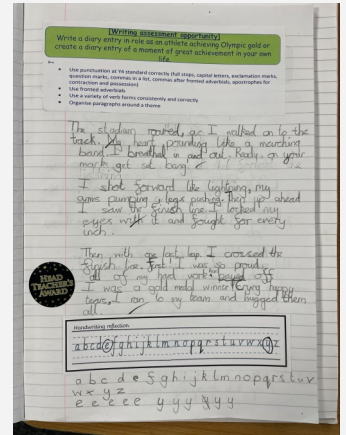 [Writing assessment opportunity]
Write a diary entry in role as an athlete achieving Olympic gold or
create a diary entry of a moment of great achievement in your own
life.
Use punctuation at Y4 standard correctly (full stops, capital letters, exclamation marks,
question marks, commas in a list, commas after fronted adverbials, apostrophes for
contraction and possession)
Use fronted adverbials
Use a variety of verb forms consistently and correctly
Organise paragraphs around a theme
The stadium roared, as I walked on to the
track. My heart pounding like a marching
band. I in and out. Ready, on your
mark get set bang.
I shot forward like lightning, my
arms pumping, legs pushing. Then up ahead
I saw the finish line. I locked my
eyes with it and fought for every
inch.
Then with one last leap. I crossed the
finish line first! I was so proud.
all of my hard work off
I was a gold medal winner! happy
tears, I ran to my team and hugged them
all.
HEAD
TEACHER'S
AWARD
Handwriting reflection
abcdefghijklmnopqrstuvwxyz
a b c d e f g h i j k l m n o p q r s t u v
w x y z
e e e e e y y y y y y